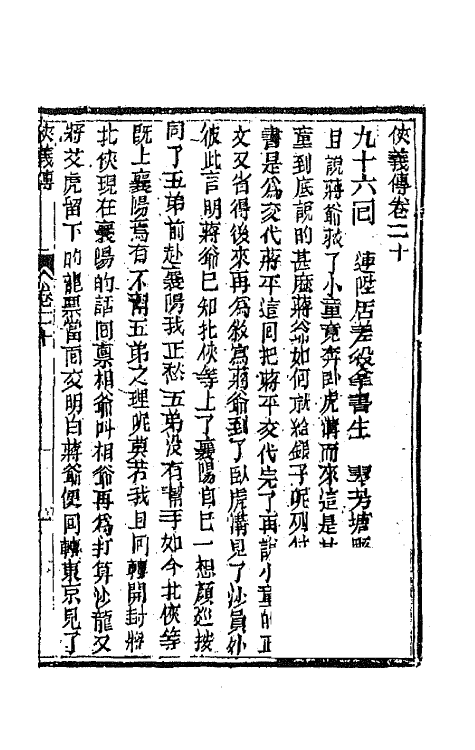 俠義傳卷二十
九十六回 連陞店差役拿書生 翠芳塘縣
且說蔣爺救了小童竟奔臥虎溝而來這是甚
童到底說的甚麽蔣爺如何就給銀子呢列位
書是爲交代蔣平這回把蔣平交代完了再說小童的正
文又省得後來再爲敘寫蔣爺到了臥虎溝見了沙員外
彼此言明蔣爺已知北俠等上了襄陽自己一想顏巡按
同了五弟前赴襄陽我正愁五弟沒有幫手如今北俠等
既上襄陽焉有不幫五弟之理呢莫若我且回轉開封將
北俠現在襄陽的話回禀相爺叫相爺再爲打算沙龍又
將艾虎留下的龍票當面交明白蔣爺便回轉東京見了
俠義傳 卷二十